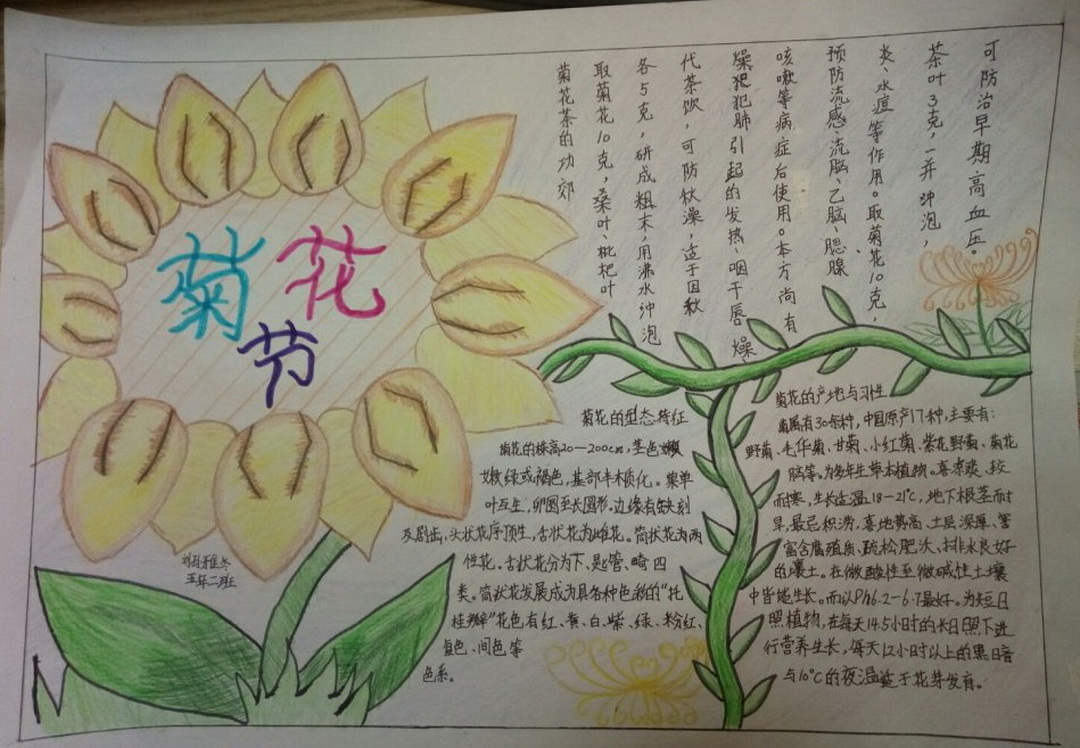 菊花
节
菊花茶的功郊
取菊花10克，桑叶、枇杷叶
各5克，研成粗末，用沸水冲泡
代茶饮，可防秋燥、适于因秋
燥犯犯肺引起的发热、咽干唇燥、
咳嗽等病症后使用。本方尚有
预防流感、流脑、乙脑、腮腺
炎、水痘等作用。取菊花10克，
茶叶3克，一并冲泡，
可防治早期高血压。
菊花的型态特征
菊花的株高20—200cm，茎色嫩
嫩绿或褐色，基部半木质化。单
叶互生，卵圆至长圆形，边缘有缺刻
及锯齿，头状花序顶生，舌状花为雌花。筒状花为两
性花。舌状花分为下、是、管、畸四
类。筒状花发展成为具各种色彩的“托
桂瓣”花色有红、黄、白、紫、绿、粉红、
复色、间色等
色系。
菊花的产地与习性
菊属有30余种，中国原产17种，主要有：
野菊、毛华菊、甘菊、小红菊、紫花野菊、菊花
脑等。为多年生草本植物。喜凉爽、较
耐寒，生长适温18—21℃，地下根茎耐
旱，最忌积涝，喜地势高、土层深厚、
富含腐殖质、疏松肥沃、排水良好
的壤土。在微酸性至微碱性土壤
中皆能生长。而以Ph6.2—6.7最好。为短日
照植物，在每天14.5小时的长日照下进
行营养生长，每天12小时以上的黑暗
与10℃的夜温适于花芽发育。
王环二班